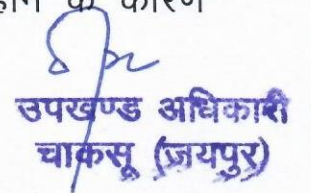 होने के कारण
उपखण्ड अधिकारी
चाकसू (जयपुर)